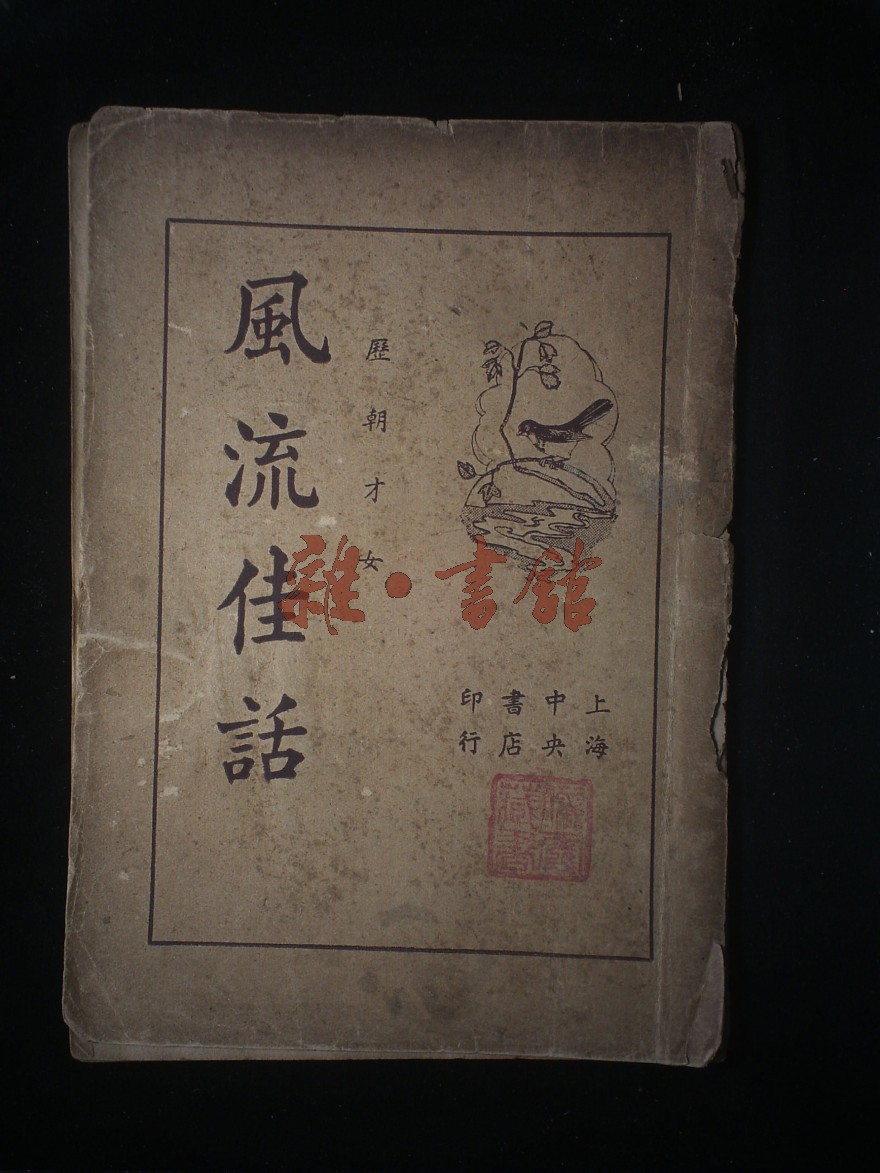 上海
中央
書店
印行
歷朝才女
風流佳話
雜·書館
藏書